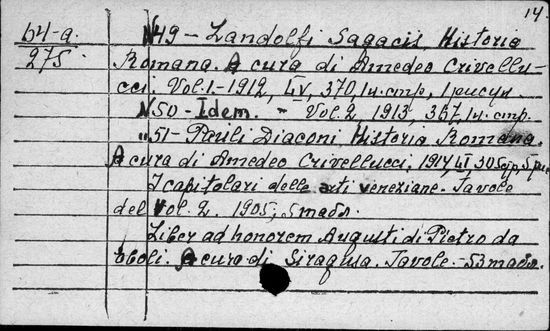 14
б4-а.
275.
N49 - Landolfi Sagacis, Historia
Romana. A cura di Amedeo Crivellu-
cci. Vol. 1.-1912, LV, 370, 14. стр., 1 рисун.
N50 - Idem. - Vol. 2, 1913, 367, 14. стр.
"51- Pauli Diaconi, Historia Romana.
A cura di Amedeo Crivellucci. 1914, LI 305
I capitolari delle arti veneziane. Tavole
del Vol. 2. 1905, 5 табл.
Liber ad honorem Augusti di Pietro da
Eboli. A cura di Siragusa. Tavole. - 53 табл.